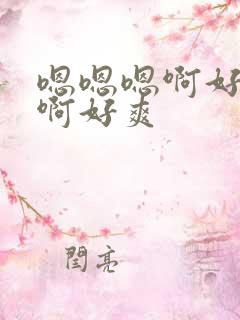 嗯嗯嗯啊好
啊好爽
閆亮